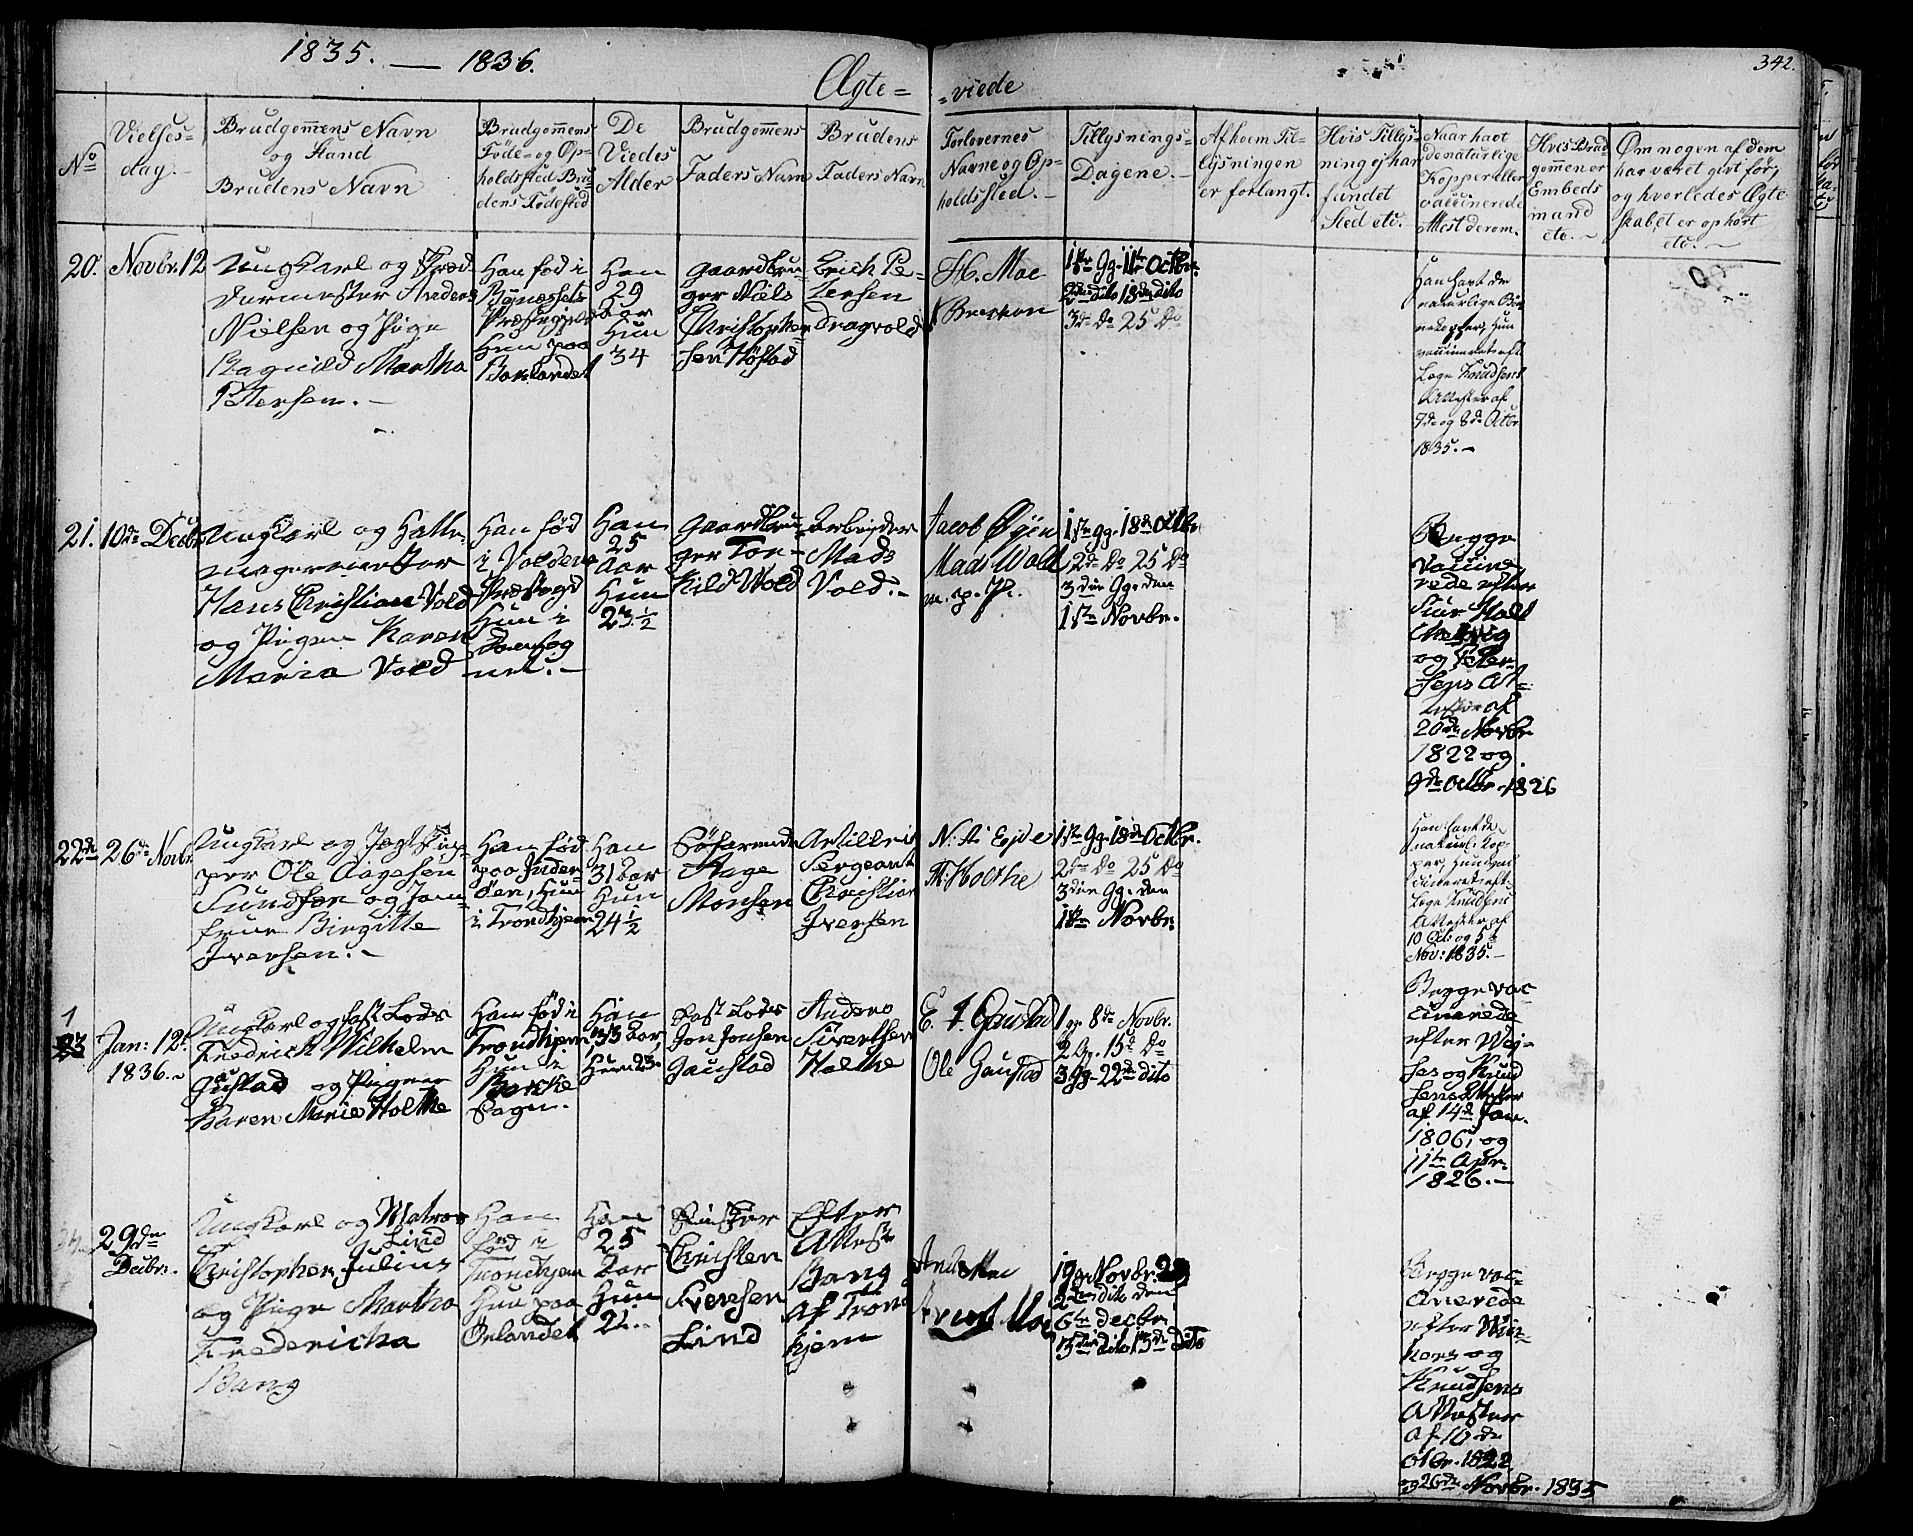 1835. — 1836.
342.
Ægte= =viede
No
Vielses=
dag.—
Brudgommens Navn
og Stand
Brudens Navn
Brudgommens
Føde- og Op-
holdsted Bru
dens Fødested
De
Viedes
Alder
Brudgommens
Faders Navn
Brudens
Faders Navn
Forlovernes
Navne og Op-
holdssted.—
Tillysnings-
Dagene.—
Af hvem Til-
lysningen
er forlangt.
Hvis Tillys-
ning ej har
fundet
Sted etc.
Naar havt
de naturlige
Kopper eller
vaccinerede
Attest derom.
Hvis Brud
gommen er
Embeds
mand
etc.—
Om nogen af dem
har været givt før,
og hvorledes Ægte
skabet er ophørt
etc.—
20.
Novbr. 12
Ungkarl og
Anders
Nielsen og Pige
Ragnild Martha
Petersen.—
Han fød i
Bynæssets
Præstegjeld
Hun paa
Baklandet
Han
29
Aar
Hun
34
Gaardbru-
ger Niels
Christopher-
sen Høstad
Erich Pe-
tersen
Dragvold
H. Moe
1ste Gg. 11te Octbr.
2den dito 18de dito
3de Do 25 Do
Han havt de
naturlige Bør
nekopper, Hun
vaccineret eft.
Læge Knudsens
Attester af
7de og 8de Octbr
1835.—
21.
10de Decbr
Ungkarl og Hatte-
magermester
Hans Christian Vold
og Pigen Karen
Maria Vold
Han fød
i
Præstegd
Hun i
Han
25
Aar
Hun
23½
Gaardbru-
ger Tor-
kild Wold
Arbeider
Mads
Vold.—
Jacob Øyen
Mads Wold
m. p. P.
1ste Gg. 18de Octbr
2de Do 25 Do
3die Gg. den
1ste Novbr.
Begge
Vaccine
rede efter
og Peter-
sens At-
tester af
20de Novbr
1822 og
9de Octbr. 1826
22de
26de Novbr.
Ungkarl og Jagtskip-
per Ole Aagesen
Sundsør og Jom-
frue Birgitte
Iversen.—
Han fød
paa Inder-
øen, Hun
i Trondhjem
Han
31 Aar
Hun
24½
Søfarende
Aage
Monsen
Artilleri
Sergeant
Christian
Iversen
M. Holthe
1ste Gg. 18de Octbr.
2den Do 25 Do
3die Gg. den
1ste Novbr.
Han havt de
naturl. Kop-
per, Hun vac
cineret eft.
Læge Knudsens
Attester af
10 Oct. og 5te
Nov: 1835.—
1
23
Jan: 12te
1836.—
Ungkarl og fast Lods
Fredrich Wilhelm
Gustad og Pigen
Karen Marie Holthe
Han fød i
Trondhjem
Hun i
Bakke
Sogn.
Han
33 Aar,
Hun 23
Fast Lods
Jon Jonsen
Gaustad
Anders
Sivertsen
Holthe
E. J. Gaustad
Ole Gaustad
1 Gg. 8de Novbr.
2 Gg. 15de Do
3 Gg. 22de dito
Begge vac-
cinerede
efter
og Knud
sens Attester
af 14de Jan.
1806, og
11te Apr.
1826.—
29de
Decbr.
Ungkarl og Matros
Lind
Christopher Julius
og Pige Martha
Fredericha
Bang
Han
fød i
Trondhjem
Hun paa
Ørlandet
Han
25
Aar
Hun
21.
Christen
Svensen
Lind
Efter
Attest
Bang
af Trond
hjem
Arnt Moe
1 Gg Novbr. 29
2den dito den
6te Decbr
3die dito 13de dito
Begge vac-
cinerede
efter
og
Knudsens
Attester
af 10de
Octbr. 1822
og 26de Novbr. 1835